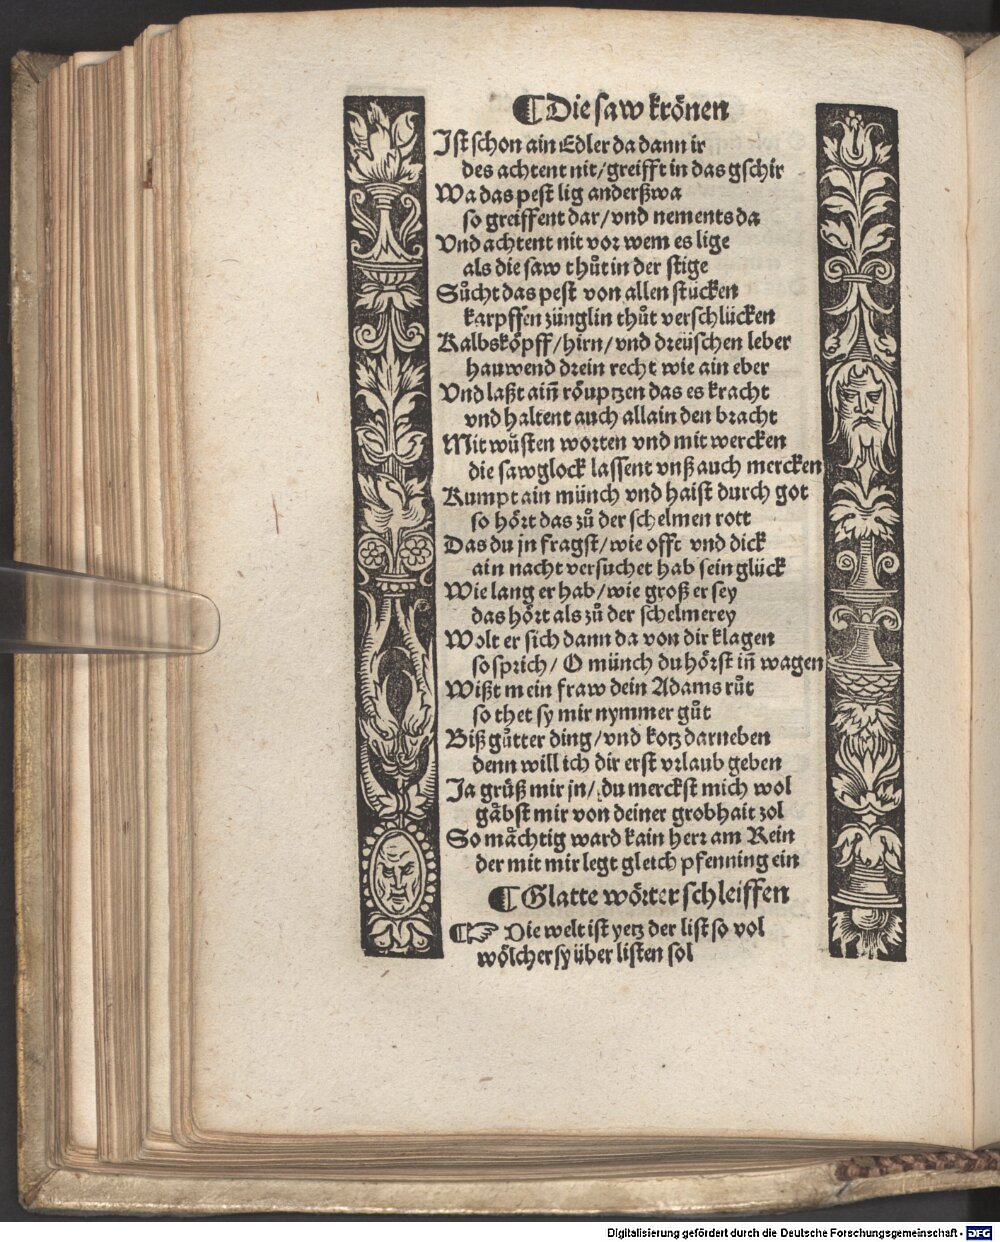 ¶ Die saw krönen
Ist schon ain Edler da dann ir
des achtent nit/greifft in das gschir
Wa das pest lig anderßwa
so greiffent dar/vnd nements da
Vnd achtent nit vor wem es lige
als die saw thůt in der stige
Sůcht das pest von allen stucken
karpffen zünglin thůt verschlücken
Kalbsköpff/hirn/vnd dreüschen leber
hauwend drein recht wie ain eber
Vnd laßt ain̄ röuptzen das es kracht
vnd haltent auch allain den bracht
Mit wůsten worten vnd mit wercken
die sawglock lassent vnß auch mercken
Kumpt ain münch vnd haist durch got
so hört das zů der schelmen rott
Das du jn fragst/wie offt vnd dick
ain nacht versuchet hab sein glück
Wie lang er hab/wie groß er sey
das hört als zů der schelmerey
Wolt er sich dann da von dir klagen
so sprich/ O münch du hörst in̄ wagen
Wißt mein fraw dein Adams růt
so thet sy mir nymmer gůt
Biß gůtter ding/vnd kotz darneben
denn will ich dir erst vrlaub geben
Ja grüß mir jn/du merckst mich wol
gåbst mir von deiner grobhait zol
So måchtig ward kain herr am Rein
der mit mir legt gleich pfenning ein
¶ Glatte wörter schleiffen
¶☞ Die welt ist yetz der list so vol
wölcher sy über listen sol
Digitalisierung gefördert durch die Deutsche Forschungsgemeinschaft - DFG